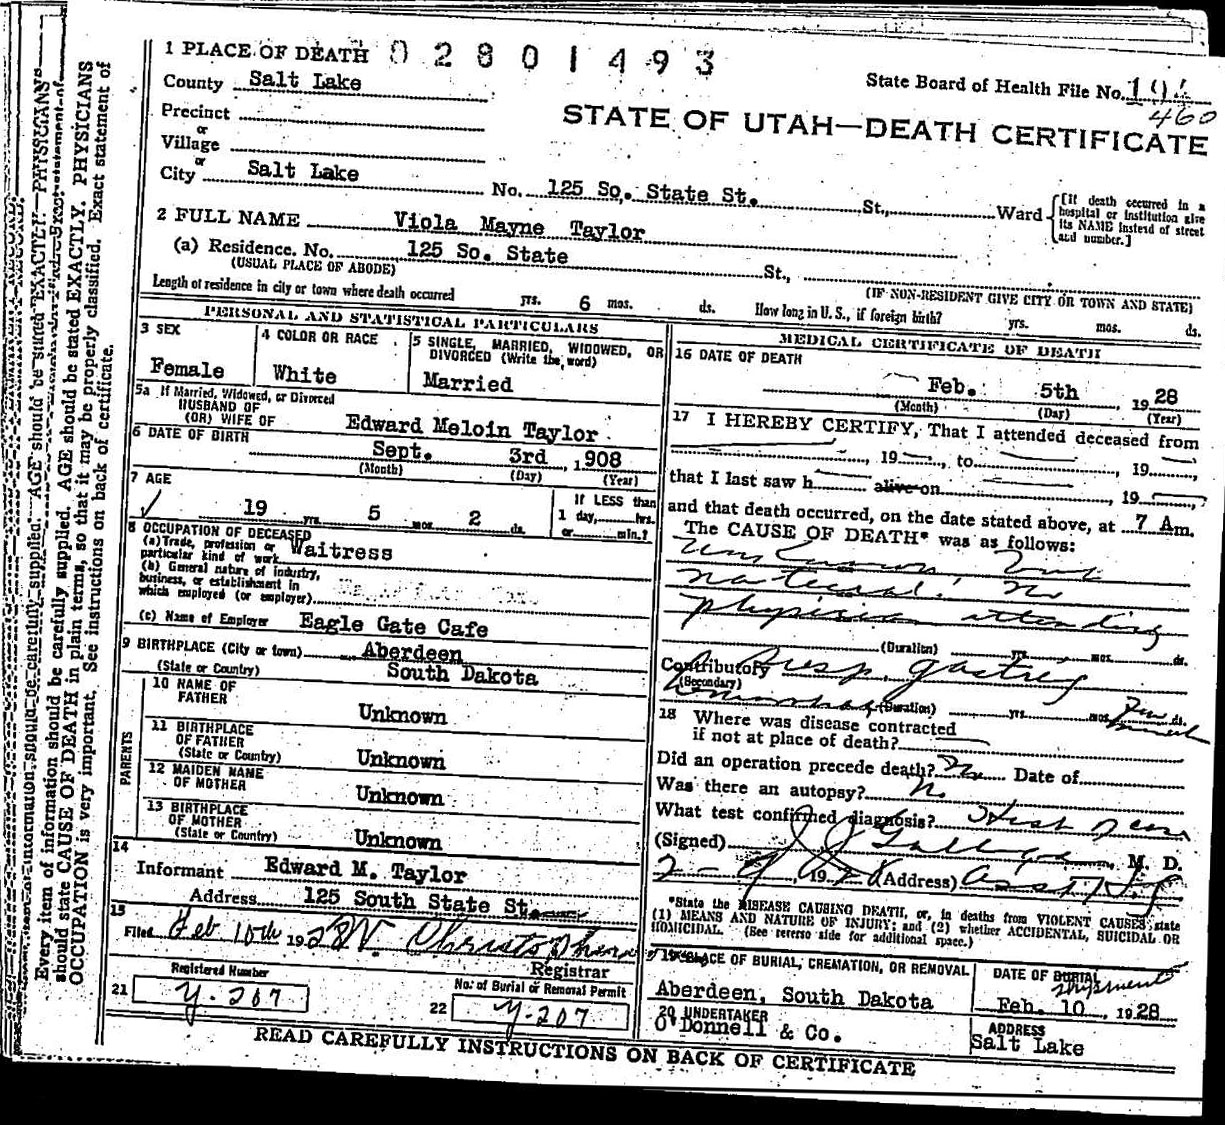 Every item of information should be carefully supplied. AGE should be stated EXACTLY. PHYSICIANS
should state CAUSE OF DEATH in plain terms, so that it may be properly classified. Exact statement of
OCCUPATION is very important. See instructions on back of certificate.
1 PLACE OF DEATH 02801493
State Board of Health File No.
460
County Salt Lake
STATE OF UTAH—DEATH CERTIFICATE
Precinct
or
Village
or
City Salt Lake No. 125 So. State St. St., Ward
[If death occurred in a hospital or institution give its NAME instead of street and number.]
2 FULL NAME Viola Mayne Taylor
(a) Residence. No. 125 So. State St.,
(USUAL PLACE OF ABODE) (IF NON-RESIDENT GIVE CITY OR TOWN AND STATE)
Length of residence in city or town where death occurred yrs. 6 mos. ds. How long in U. S., if foreign birth? yrs. mos. ds.
PERSONAL AND STATISTICAL PARTICULARS
3 SEX
Female
4 COLOR OR RACE
White
5 SINGLE, MARRIED, WIDOWED, OR DIVORCED (Write the word)
Married
5a If Married, Widowed, or Divorced
HUSBAND OF
(OR) WIFE OF Edward Meloin Taylor
6 DATE OF BIRTH Sept. 3rd, 1908
(Month) (Day) (Year)
7 AGE
19 yrs. 5 mos. 2 ds.
If LESS than
1 day, hrs.
or min.?
8 OCCUPATION OF DECEASED
(a) Trade, profession or
particular kind of work Waitress
(b) General nature of industry,
business, or establishment in
which employed (or employer)
(c) Name of Employer Eagle Gate Cafe
9 BIRTHPLACE (City or town) Aberdeen
(State or Country) South Dakota
PARENTS
10 NAME OF
FATHER Unknown
11 BIRTHPLACE
OF FATHER
(State or Country) Unknown
12 MAIDEN NAME
OF MOTHER Unknown
13 BIRTHPLACE
OF MOTHER
(State or Country) Unknown
14
Informant Edward M. Taylor
Address 125 South State St.
15
Filed Feb 10th 1928
Registrar
Registered Number
21 Y-207
No. of Burial or Removal Permit
22 Y-207
MEDICAL CERTIFICATE OF DEATH
16 DATE OF DEATH
Feb. 5th 1928
(Month) (Day) (Year)
17 I HEREBY CERTIFY, That I attended deceased from
, 19 , to , 19
that I last saw h alive on 19
and that death occurred, on the date stated above, at 7 Am.
The CAUSE OF DEATH* was as follows:
Unknown, but
natural. No
physician attending
(Duration) yrs. mos. ds.
Contributory gastric
(Secondary) (Duration) yrs. mos. ds.
18 Where was disease contracted
if not at place of death?
Did an operation precede death? No Date of
Was there an autopsy? No
What test confirmed diagnosis?
(Signed) M. D.
, 19 (Address)
*State the DISEASE CAUSING DEATH, or, in deaths from VIOLENT CAUSES, state
(1) MEANS AND NATURE OF INJURY; and (2) whether ACCIDENTAL, SUICIDAL OR
HOMICIDAL. (See reverse side for additional space.)
19 PLACE OF BURIAL, CREMATION, OR REMOVAL
Aberdeen, South Dakota
DATE OF BURIAL
shipment
Feb. 10, 1928
20 UNDERTAKER
O'Donnell & Co.
ADDRESS
Salt Lake
READ CAREFULLY INSTRUCTIONS ON BACK OF CERTIFICATE